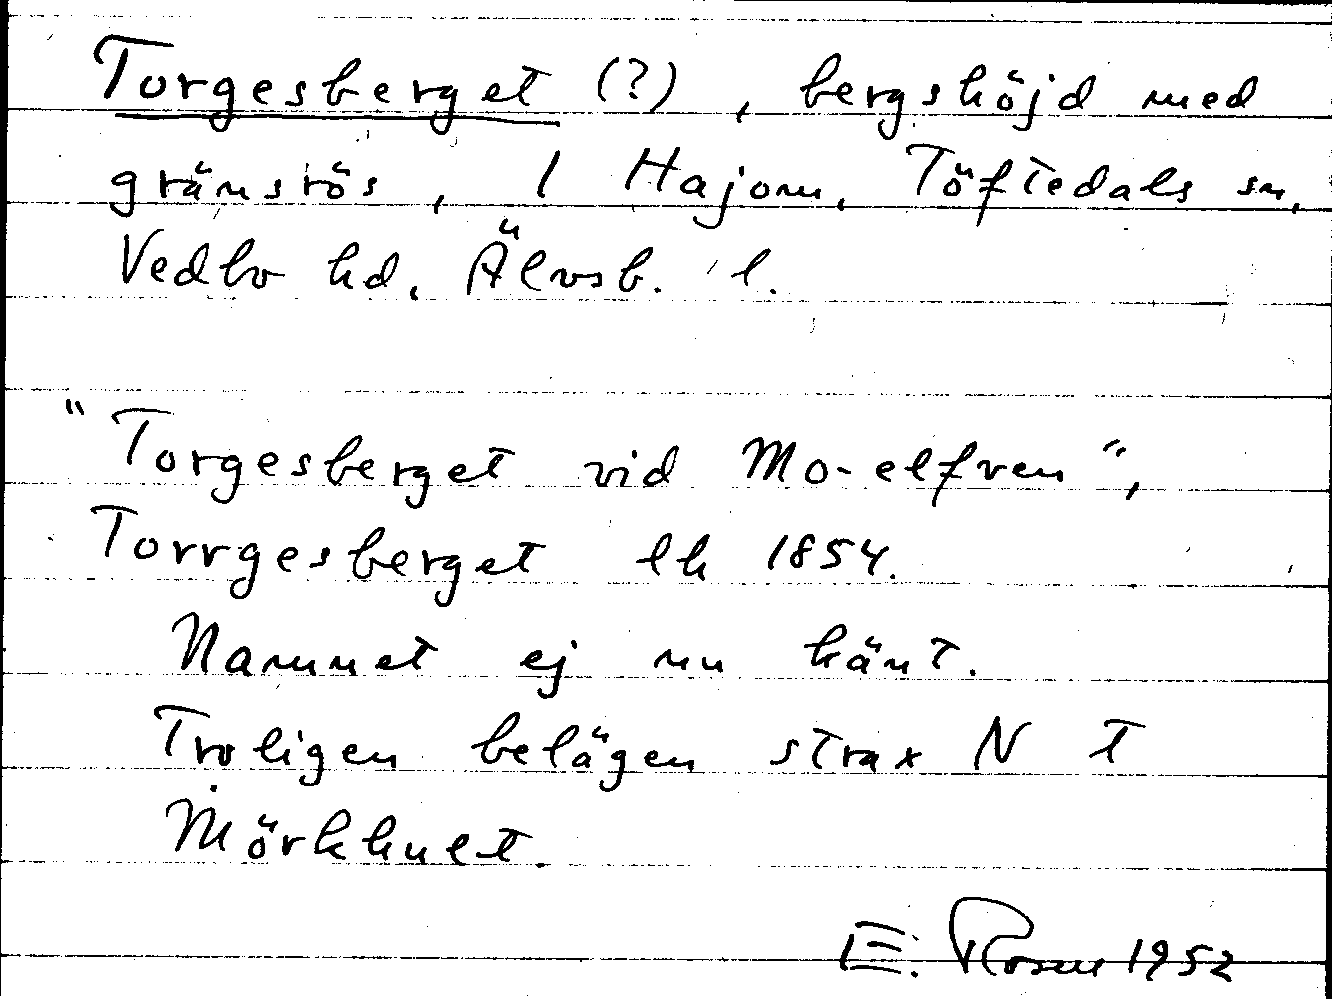 Torgesberget (?), bergshöjd med
gränsrös, 1 Hajom, Töftedals sn,
Vedbo hd, Älvsb. l.
"Torgesberget vid Mo-elfven",
Torrgesberget lh 1854.
Namnet ej nu känt.
Troligen belägen strax N T
Mörkhult.
E. Rosen 1952